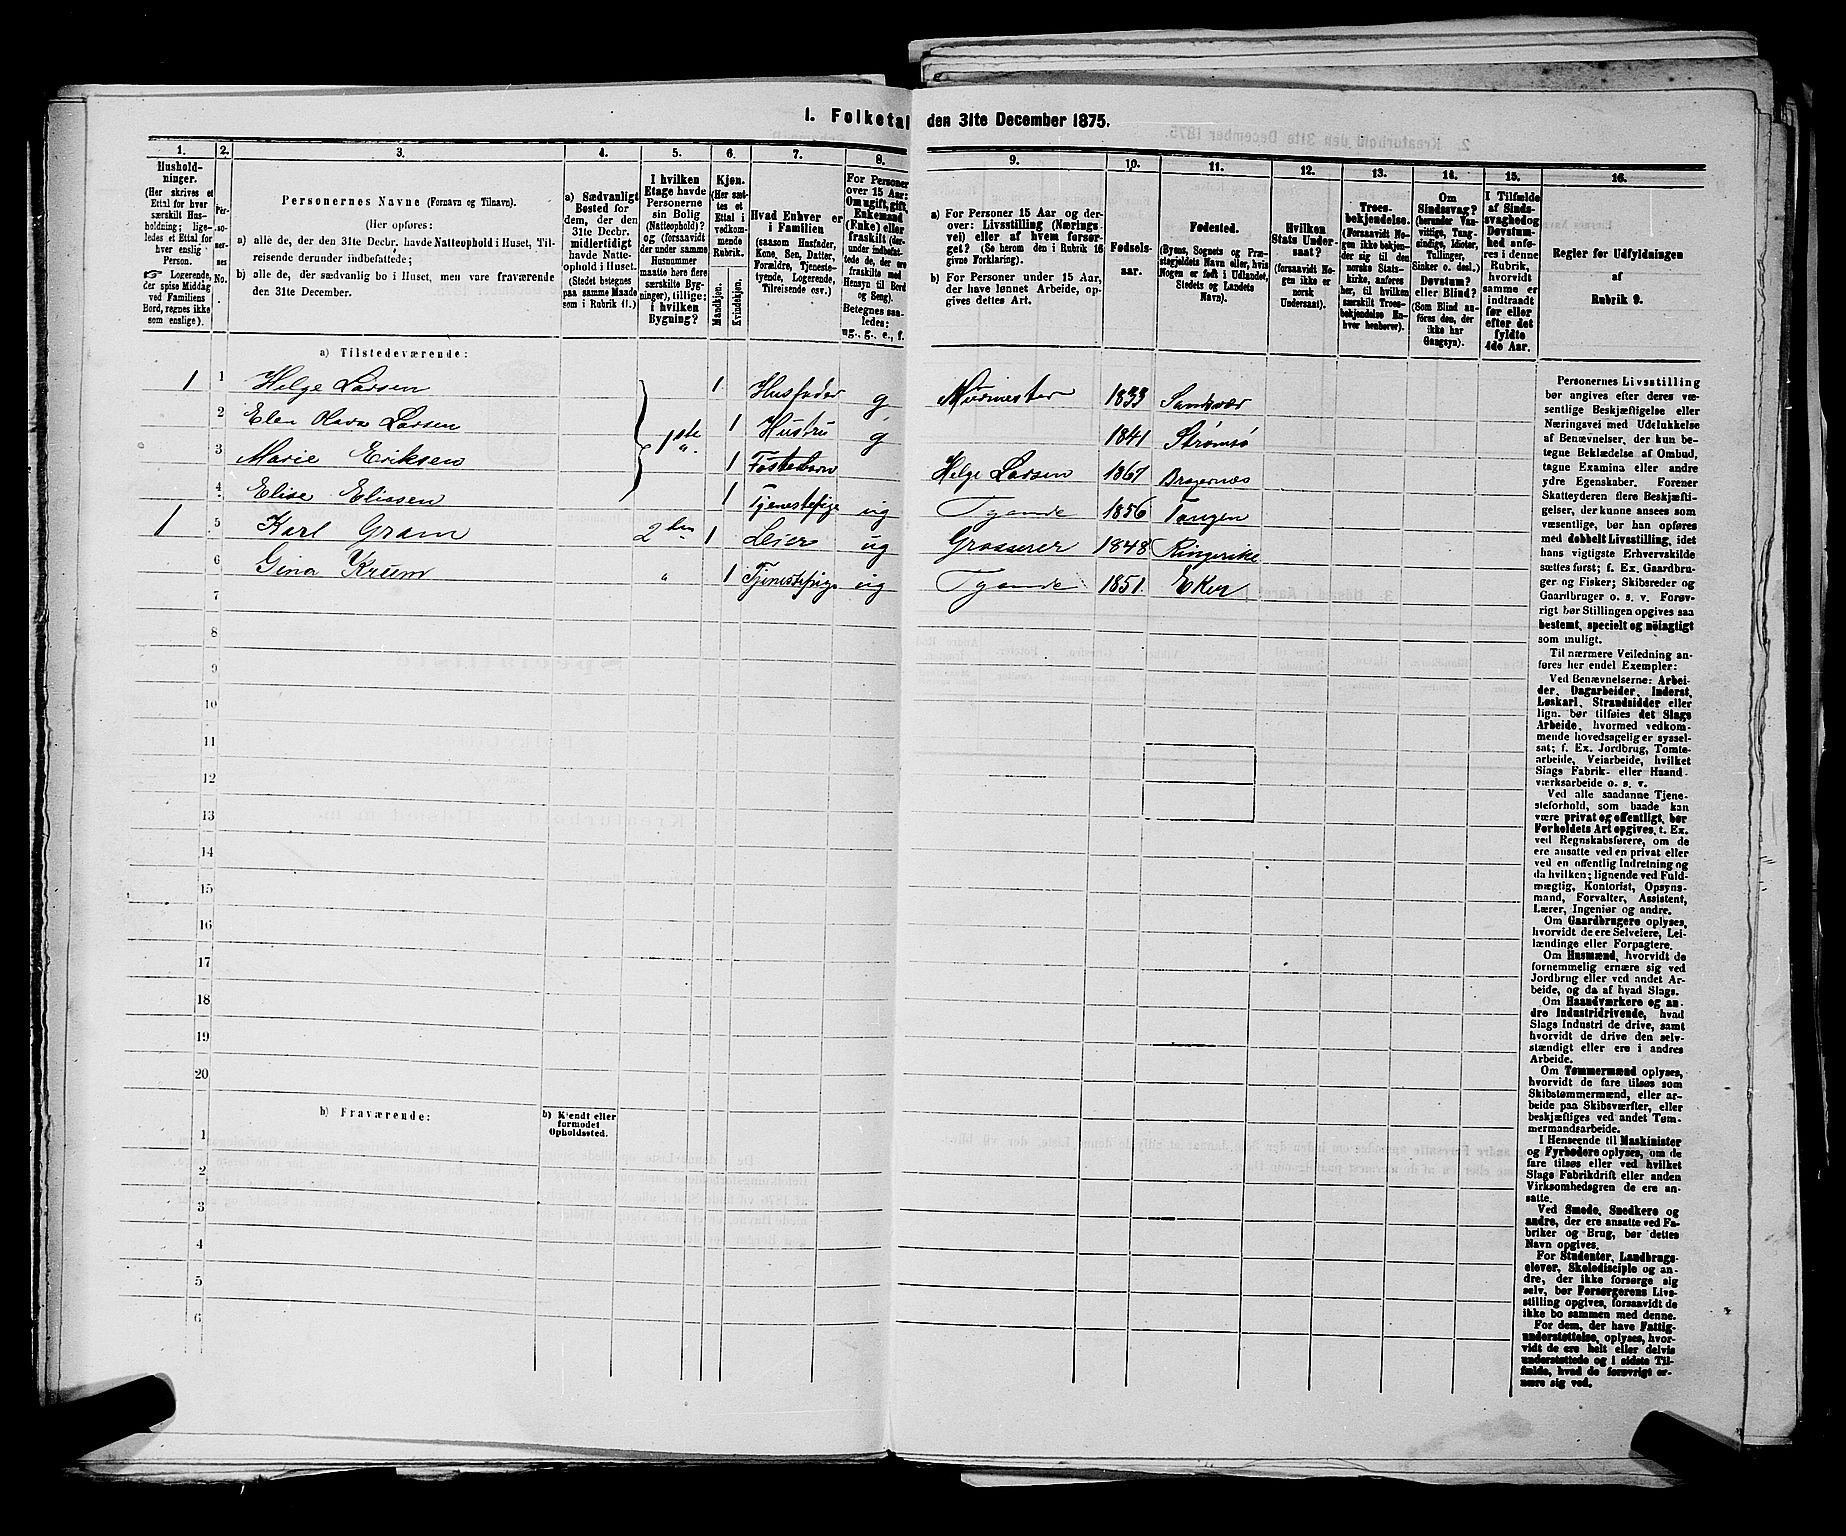 1. Folketal den 31te December 1875.
1. 2. 3. 4. 5. 6. 7. 8. 9. 10. 11. 12. 13. 14. 15. 16.
Hushold-
ninger.
(Her skrives et
Ettal for hver
særskilt Hus-
holdning; lige-
ledes et Ettal for
hver enslig
Person.
Logerende,
der spise Middag
ved Familiens
Bord, regnes ikke
som enslige).
Per-
so-
ner-
nes
No.
Personernes Navne (Fornavn og Tilnavn).
(Her opføres:
a) alle de, der den 31te Decbr. havde Natteophold i Huset, Til-
reisende derunder indbefattede;
b) alle de, der sædvanlig bo i Huset, men vare fraværende
den 31te December.
a) Sædvanligt
Bosted for
dem, der den
31te Decbr.
midlertidigt
havde Natte-
ophold i Huset.
(Stedet betegnes
paa samme Maade
som i Rubrik 11.)
I hvilken
Etage havde
Personerne
sin Bolig
(Natteophold)?
og (forsaavidt
der under samme
Husnummer
maatte høre flere
særskilte Byg-
ninger), tillige:
i hvilken
Bygning?
Kjøn.
(Her sæt-
tes et
Ettal i
vedkom-
mende
Rubrik.
Mandkjøn.
Kvindekjøn.
Hvad Enhver er
i Familien
(saasom Husfader,
Kone, Søn, Datter,
Forældre, Tjeneste-
tyende, Logerende,
Tilreisende osv.)
For Personer
over 15 Aar:
Om ugift, gift,
Enkemand
(Enke) eller
fraskilt (der-
under indbefat-
tede de, der ere
fraskilte med
Hensyn til Bord
og Seng).
Betegnes saa-
ledes:
ug., g., e., f.
a) For Personer 15 Aar og der-
over: Livsstilling (Nærings-
vei) eller af hvem forsør-
get? (Se herom den i Rubrik 16
givne Forklaring).
b) For Personer under 15 Aar,
der have lønnet Arbeide, op-
gives dettes Art.
Fødsels-
aar.
Fødested.
(Byens, Sognets og Præ-
stegjeldets Navn eller, hvis
Nogen er født i Udlandet,
Stedets og Landets
Navn).
Hvilken
Stats Under-
saat?
(forsaavidt No-
gen ikke er
norsk
Undersaat).
Troes-
bekjendelse.
(Forsaavidt No-
gen ikke bekjen-
der sig til den
norske Stats-
kirke, anføres
her, til hvilken
særskilt Troes-
bekjendelse En-
hver henhører).
Om
Sindssvag?
(herunder Van-
vittige, Tung-
sindige, Idioter,
Tullinger,
Sinker o. desl.)
Døvstum?
eller Blind?
(Som Blind an-
føres den, der
ikke har
Gangsyn).
I Tilfælde
af Sinds-
svaghed og
Døvstum-
hed anfø-
res i denne
Rubrik,
hvorvidt
samme er
indtraadt
før eller
efter det
fyldte
4de Aar.
Regler for Udfyldningen
af
Rubrik 9.
a) Tilstedeværende:
1 1 Helge Larsen 1 Husfader g Murmester 1833 Sandsvær
2 Elen Olava Larsen 1ste 1 Hustru g 1841 Strømsø
3 Marie Eriksen " 1 Fosterbarn Helge Larsen 1867 Bragernes
4 Elise Eliasen 1 Tjenestepige ug Tyende 1856 Tangen
1 5 Karl Gram 2den 1 Leier ug Grosserer 1848 Ringerike
6 Gina Krum " 1 Tjenestepige ug Tyende 1851 Eker
7
8
9
10
11
12
13
14
15
16
17
18
19
20
b) Fraværende:
b) Kjendt eller
formodet
Opholdssted.
1
2
3
4
5
6
Personernes Livsstilling
bør angives efter deres væ-
sentlige Beskjæftigelse eller
Næringsvei med Udelukkelse
af Benævnelser, der kun be-
tegne Beklædelse af Ombud,
tagne Examina eller andre
ydre Egenskaber. Forener
Skatteyderen flere Beskjæfti-
gelser, der kunne ansees som
væsentlige, bør han opføres
med dobbelt Livsstilling, idet
hans vigtigste Erhvervskilde
sættes først; f. Ex. Gaardbru-
ger og Fisker; Skibsreder og
Gaardbruger o. s. v. Forøv-
rigt bør Stillingen opgives saa
bestemt, specielt og nöiagtigt
som muligt.
Til nærmere Veiledning an-
føres her endel Exempler:
Ved Benævnelserne: Arbei-
der, Dagarbeider, Inderst,
Løskarl, Strandsidder eller
lign. bør tilføies det Slags
Arbeide, hvormed vedkom-
mende hovedsagelig er syssel-
sat; f. Ex. Jordbrug, Tomte-
arbeide, Veiarbeide, hvilket
Slags Fabrik- eller Haand-
værksarbeide o. s. v.
Ved alle saadanne Tjene-
steforhold, som baade kan
være privat og offentligt, bør
Forholdets Art opgives, t. Ex.
ved Regnskabsførere, om de
ere ansatte ved en privat eller
ved en offentlig Indretning og
da hvilken; lignende ved Fuld-
mægtig, Kontorist, Opsyns-
mand, Forvalter, Assistent,
Lærer, Ingeniør og andre.
Om Gaardbrugere oplyses,
hvorvidt de ere Selveiere, Lei-
lændinge eller Forpagtere.
Om Husmænd, hvorvidt de
fornemmelig ernære sig ved
Jordbrug eller ved andet Ar-
beide, og da af hvad Slags.
Om Haandværkere og an-
dre Industridrivende, hvad
Slags Industri de drive, samt
hvorvidt de drive den selv-
stændigt eller ere i andres
Arbeide.
Om Tømmermænd oplyses,
hvorvidt de fare tilsøs som
Skibstømmermænd, eller ar-
beide paa Skibsværfter, eller
beskjæftiges ved andet Tøm-
mermandsarbeide.
I Henseende til Maskinister
og Fyrbødere oplyses, om de
fare tilsøs eller ved hvilket
Slags Fabrikdrift eller anden
Virksomhedsgren de ere an-
satte.
Ved Smede, Snedkere og
andre, der ere ansatte ved Fa-
briker og Brug, bør dettes
Navn opgives.
For Studenter, Landbrugs-
elever, Skoledisciple og an-
dre, der ikke forsørge sig
selv, bør Forsørgerens Livs-
stilling opgives, forsaavidt de
ikke bo sammen med denne.
For dem, der have Fattig-
understøttelse, oplyses, hvor-
vidt de ere helt eller delvis
understøttede og i sidste Til-
fælde, hvad de forøvrigt er-
nære sig ved.